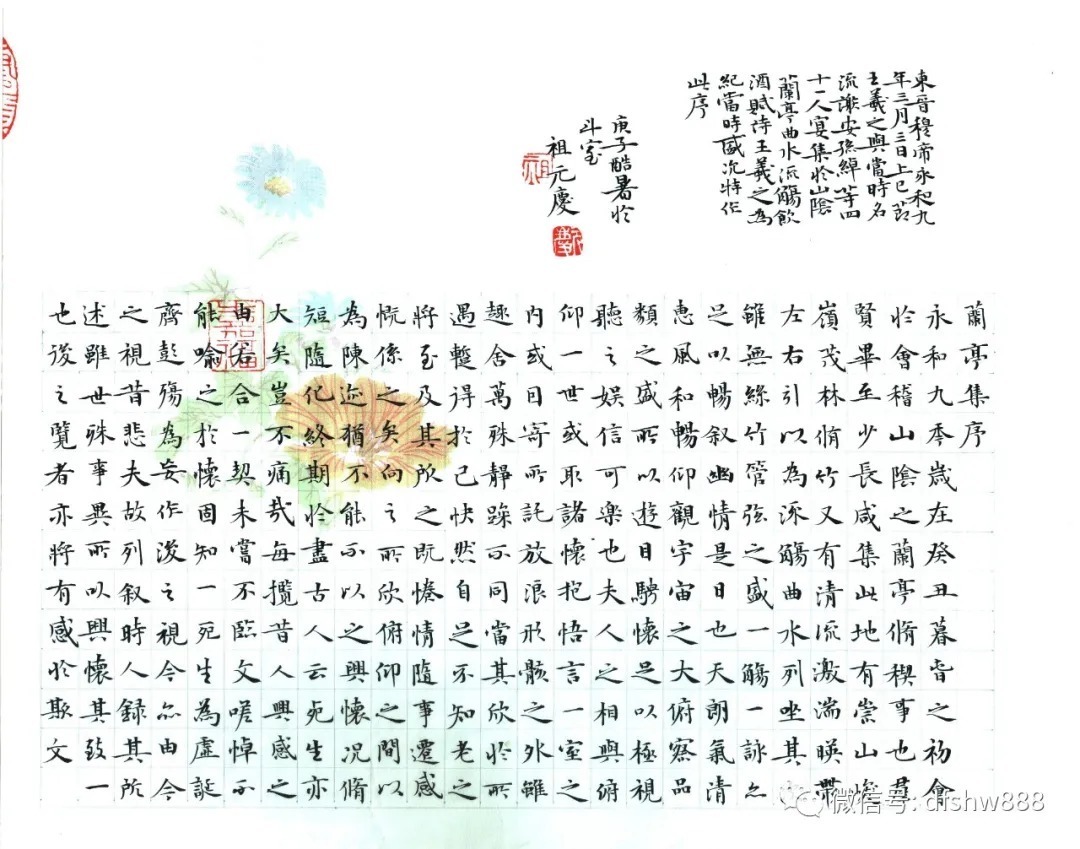 東晉穆帝永和九
年三月三日上巳節
王羲之與當時名
流謝安孫綽等四
十一人宴集於山陰
蘭亭曲水流觴飲
酒賦詩王羲之為
紀當時盛況特作
此序
庚子酷暑於
斗室
祖元慶
蘭亭集序
永和九年歲在癸丑暮春之初會
於會稽山陰之蘭亭脩稧事也羣
賢畢至少長咸集此地有崇山峻
嶺茂林脩竹又有清流激湍暎帶
左右引以為流觴曲水列坐其
雖無絲竹管弦之盛一觴一詠亦
足以暢叙幽情是日也天朗氣清
惠風和暢仰觀宇宙之大俯察品
類之盛所以遊目騁懷足以極視
聽之娛信可樂也夫人之相與俯
仰一世或取諸懷抱悟言一室之
内或因寄所託放浪形骸之外雖
趣舍萬殊靜躁不同當其欣於所
遇蹔得於己快然自足不知老之
將至及其所之既惓情隨事遷感
慨係之矣向之所欣俯仰之間以
為陳迹猶不能不以之興懷況脩
短隨化終期於盡古人云死生亦
大矣豈不痛哉每攬昔人興感之
由若合一契未嘗不臨文嗟悼不
能喻之於懷固知一死生為虛誕
齊彭殤為妄作後之視今亦由今
之視昔悲夫故列叙時人錄其所
述雖世殊事異所以興懷其致一
也後之覽者亦將有感於斯文
微信号: dfshw888